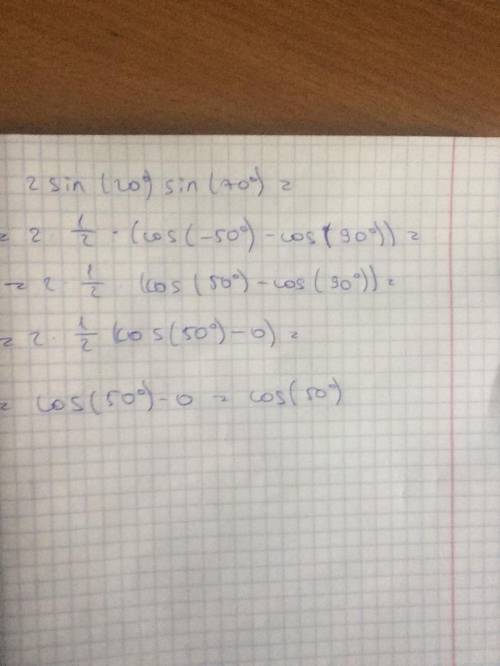 2 sin (20°) sin (70°) =
= 2 · 1/2 · (cos(-50°) - cos(90°)) =
= 2 · 1/2 (cos (50°) - cos (90°)) =
= 2 · 1/2 (cos(50°) - 0) =
= cos(50°) - 0 = cos(50°)